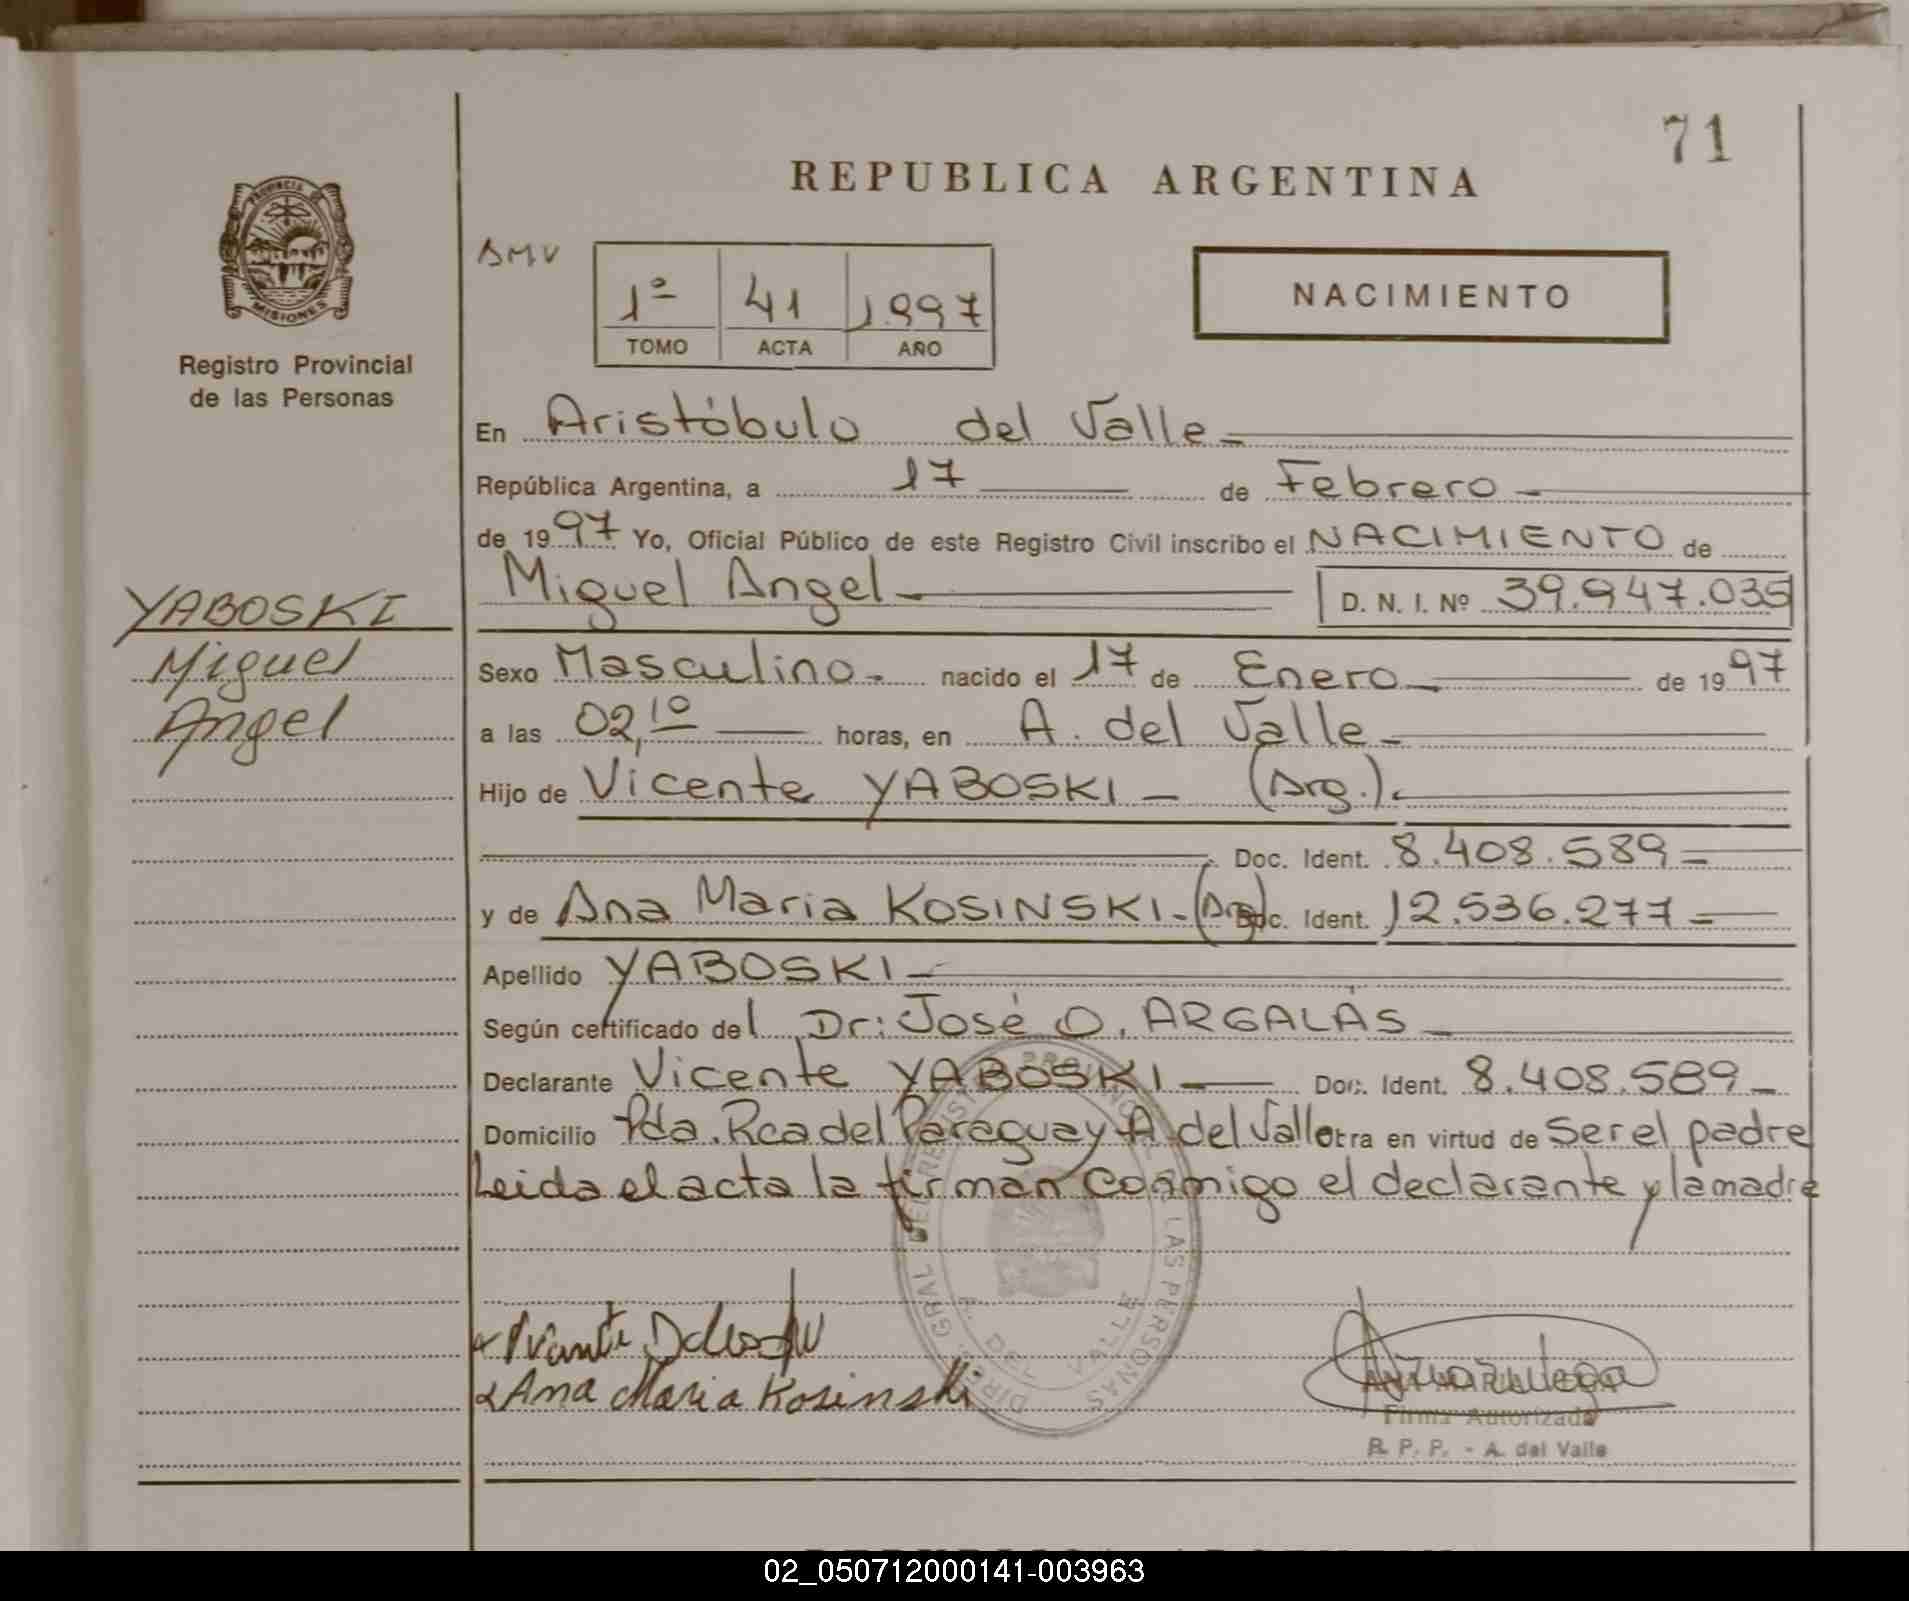 71
REPUBLICA ARGENTINA
PROVINCIA DE
MISIONES
Registro Provincial
de las Personas
AMV
1º 41 1.997
TOMO ACTA AÑO
NACIMIENTO
En Aristóbulo del Valle.
República Argentina, a 17 de Febrero
de 1997 Yo, Oficial Público de este Registro Civil inscribo el NACIMIENTO de
Miguel Angel D. N. I. Nº 39.947.035
YABOSKI
Miguel
Angel
Sexo Masculino. nacido el 17 de Enero de 1997
a las 02,10 horas, en A. del Valle
Hijo de Vicente YABOSKI - (Arg.).
Doc. Ident. 8.408.589
y de Ana Maria KOSINSKI-(Arg) Doc. Ident. 12.536.277
Apellido YABOSKI
Según certificado del Dr: José O. ARGALÁS
Declarante Vicente YABOSKI Doc. Ident. 8.408.589
Domicilio Pda. Rca del Paraguay A. del Valle tra en virtud de Ser el padre
Leida el acta la firman conmigo el declarante y la madre
DIREC. GRAL DEL REGIST. PROVINC. DE LAS PERSONAS
A. DEL VALLE
Ana Maria Kosinski
ANA MARIA
Firma Autorizada
R. P. P. - A. del Valle
02_050712000141-003963